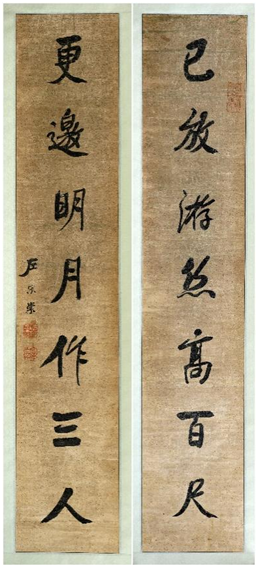 已放游丝高百尺
更邀明月作三人
左宗棠